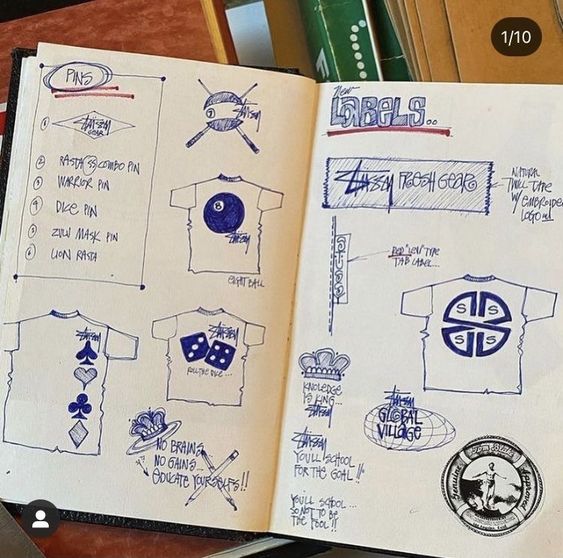 1/10
PINS
1 STÜSSY
GEAR
2 RASTA SS COMBO PIN
3 WARRIOR PIN
4 DICE PIN
5 ZULU MASK PIN
6 LION RASTA
STÜSSY
8
STÜSSY
EIGHT BALL
STÜSSY
STÜSSY
ROLL THE DICE...
NO BRAINS
NO GAINS...
EDUCATE YOURSELFS!!
New
LABELS..
STÜSSY FRESH GEAR
NATURAL
TWILL TAPE
W/ EMBROIDER
LOGO
RED "LEVI" TYPE
TAB LABEL...
S S
S S
KNOLEDGE
IS KING...
STÜSSY
STÜSSY
GLOBAL
VILLAGE
STÜSSY
YOU'LL SCHOOL
FOR THE GOAL!!
YOU'LL SCHOOL...
SO NOT TO BE
THE FOOL!!
Genuine
Approved